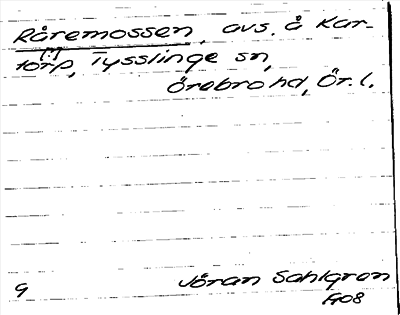 Råremossen, avs. å Kar-
torp, (?) Tysslinge sn,
Örebro hd, Ör. l.
9 Jöran Sahlgren
1908